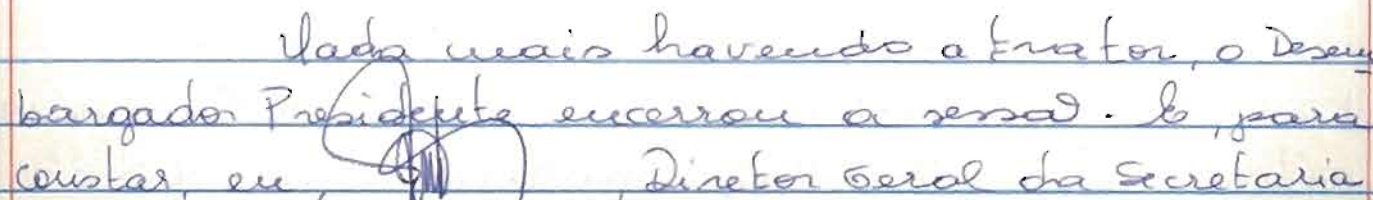 Nada mais havendo a tratar, o Desem
bargador Presidente encerrou a sessão. E, para
constar, eu, , Diretor Geral da Secretaria